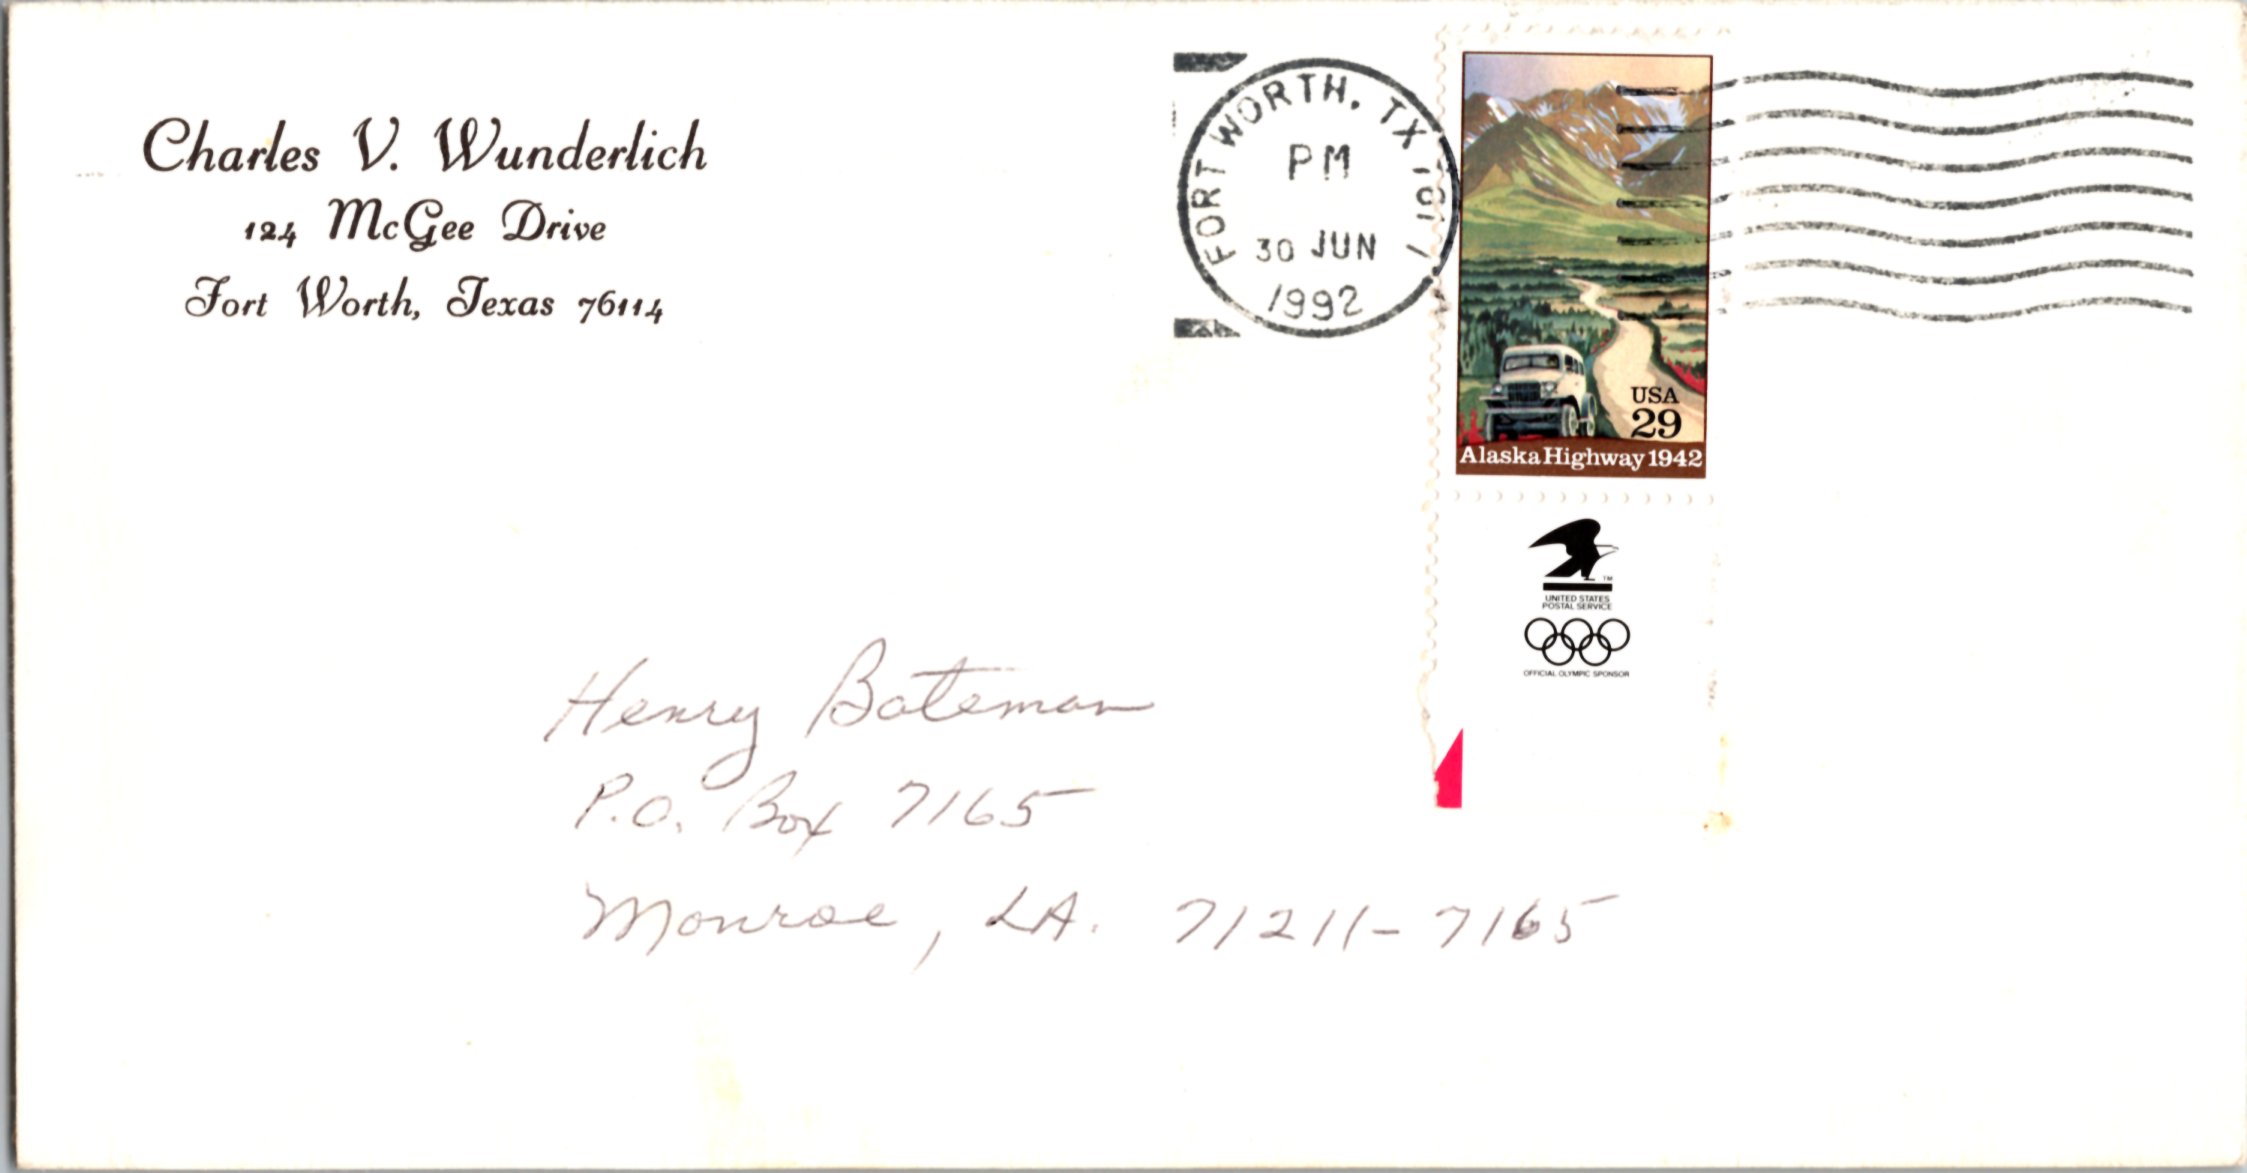 Charles V. Wunderlich
124 McGee Drive
Fort Worth, Texas 76114
FORT WORTH, TX 761
PM
30 JUN
1992
USA
29
Alaska Highway 1942
TM
UNITED STATES
POSTAL SERVICE
OFFICIAL OLYMPIC SPONSOR
Henry Bateman
P.O. Box 7165
Monroe, LA. 71211-7165